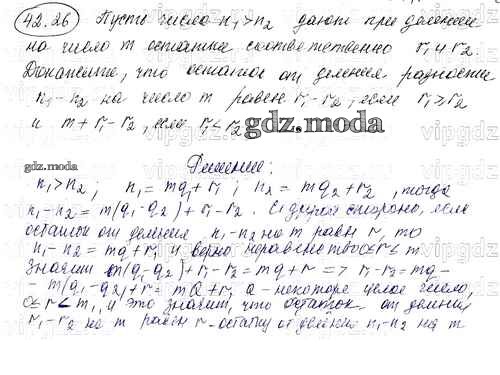 42.26 Пусть число n₁>n₂ дают при делении
на число m остатки соответственно r₁ и r₂.
Докажите, что остаток от деления разности
n₁-n₂ на число m равен r₁-r₂, если r₁≥r₂
и m+r₁-r₂, если r₁<r₂
gdz.moda
Решение:
gdz.moda
n₁>n₂; n₁=mq₁+r₁; n₂=mq₂+r₂, тогда
n₁-n₂=m(q₁-q₂)+r₁-r₂. С другой стороны, если
остаток от деления n₁-n₂ на m равен r, то
n₁-n₂=mq+r, и верно неравенство 0≤r≤m
Значит m(q₁-q₂)+r₁-r₂=mq+r => r₁-r₂=mq-
-m(q₁-q₂)+r=mQ+r, Q-некоторое целое число,
0≤r<m, и это значит, что остаток от деления
r₁-r₂ на m равен r-остатку от деления n₁-n₂ на m